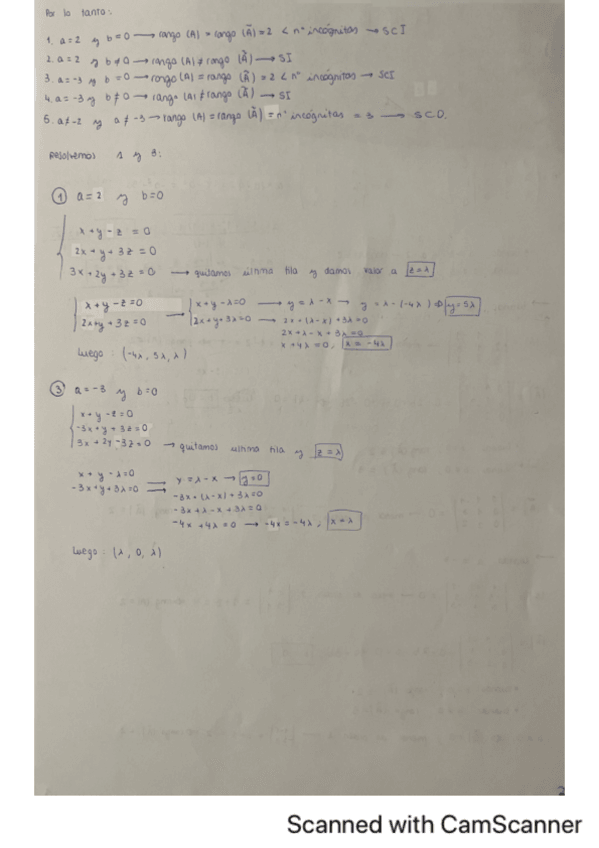 Por lo tanto:
1. a = 2 y b = 0 → rango (A) = rango (Ã) = 2 < nº incógnitas → SCI
2. a = 2 y b ≠ 0 → rango (A) ≠ rango (Ã) → SI
3. a = -3 y b = 0 → rango (A) = rango (Ã) = 2 < nº incógnitas → SCI
4. a = -3 y b ≠ 0 → rango (A) ≠ rango (Ã) → SI
5. a ≠ -2 y a ≠ -3 → rango (A) = rango (Ã) = nº incógnitas = 3 → S.C.D.
Resolvemos 1 y 3:
① a = 2 y b = 0
x + y - z = 0
2x + y + 3z = 0
3x + 2y + 3z = 0 → quitamos última fila y damos valor a z = λ
x + y - z = 0 → x + y - λ = 0 → y = λ - x → y = λ - (-4λ) ⇒ y = 5λ
2x + y + 3z = 0 2x + y + 3λ = 0 → 2x + (λ - x) + 3λ = 0
2x + λ - x + 3λ = 0
x + 4λ = 0, x = -4λ
Luego: (-4λ, 5λ, λ)
③ a = -3 y b = 0
x + y - z = 0
-3x + y + 3z = 0
3x + 2y - 3z = 0 → quitamos última fila y z = λ
x + y - λ = 0 y = λ - x → y = 0
-3x + y + 3λ = 0 -3x + (λ - x) + 3λ = 0
-3x + λ - x + 3λ = 0
-4x + 4λ = 0 → -4x = -4λ, x = λ
Luego: (λ, 0, λ)
2
Scanned with CamScanner